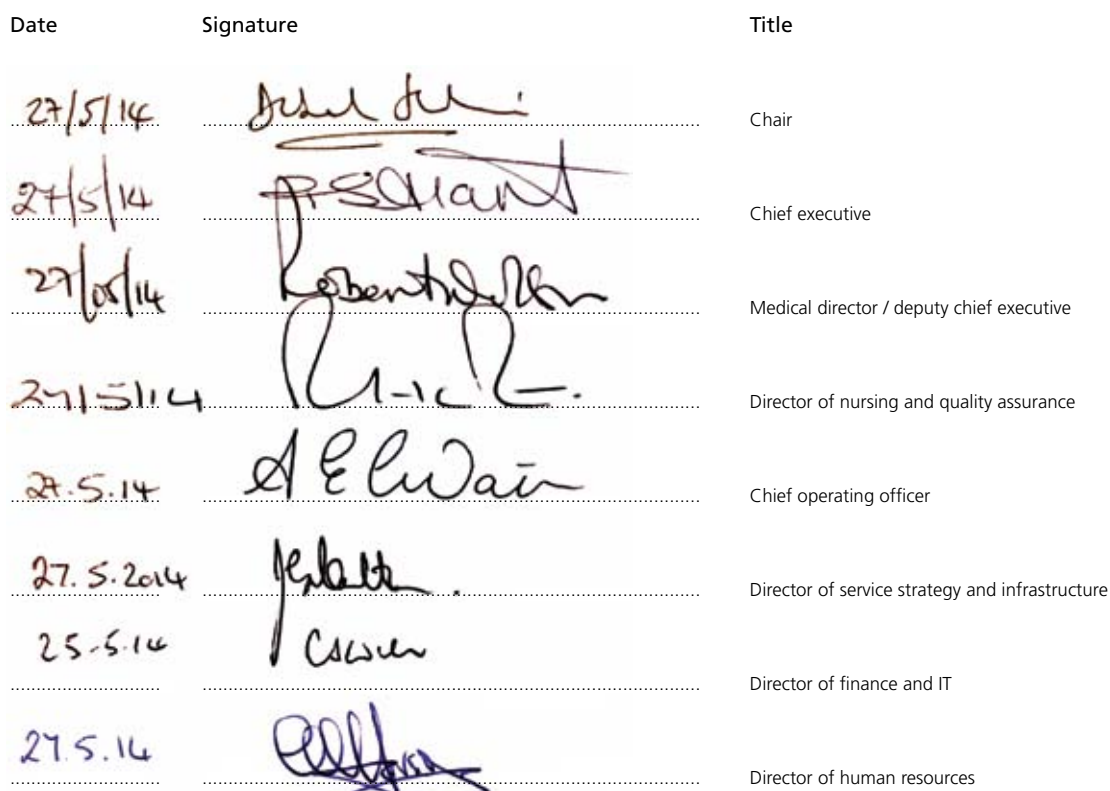 Date Signature Title
27/5/14 Chair
27/5/14 Chief executive
27/05/14 Robert Medical director / deputy chief executive
27/5/14 Director of nursing and quality assurance
27.5.14 A E Chief operating officer
27.5.2014 Director of service strategy and infrastructure
25.5.14 Director of finance and IT
27.5.14 Director of human resources